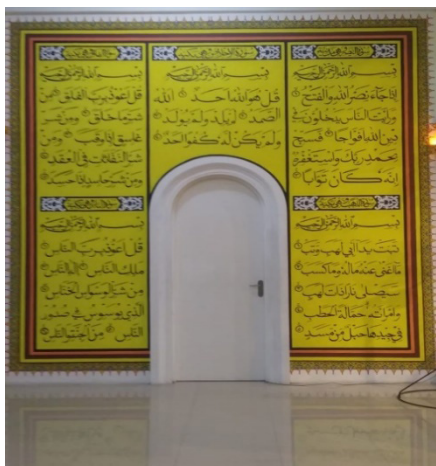 بسم الله الرحمن الرحيم
إذا جاء نصر الله والفتح
ورأيت الناس يدخلون في
دين الله أفواجا فسبح
بحمد ربك واستغفره
إنه كان توابا
بسم الله الرحمن الرحيم
تبت يدا أبي لهب وتب
ما أغنى عنه ماله وما كسب
سيصلى نارا ذات لهب
وامرأته حمالة الحطب
في جيدها حبل من مسد
بسم الله الرحمن الرحيم
قل هو الله أحد الله
الصمد لم يلد ولم يولد
ولم يكن له كفوا أحد
بسم الله الرحمن الرحيم
قل أعوذ برب الفلق من
شر ما خلق ومن شر
غاسق إذا وقب ومن
شر النفاثات في العقد
ومن شر حاسد إذا حسد
بسم الله الرحمن الرحيم
قل أعوذ برب الناس
ملك الناس إله الناس
من شر الوسواس الخناس
الذي يوسوس في صدور
الناس من الجنة والناس